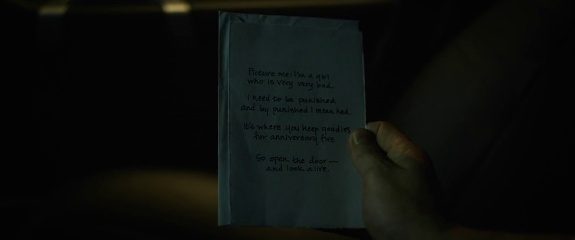 Picture me: I'm a girl
who is very very bad.
I need to be punished
and by punished I mean had.
It's where you keep goodies
for anniversary five.
So open the door —
and look alive.